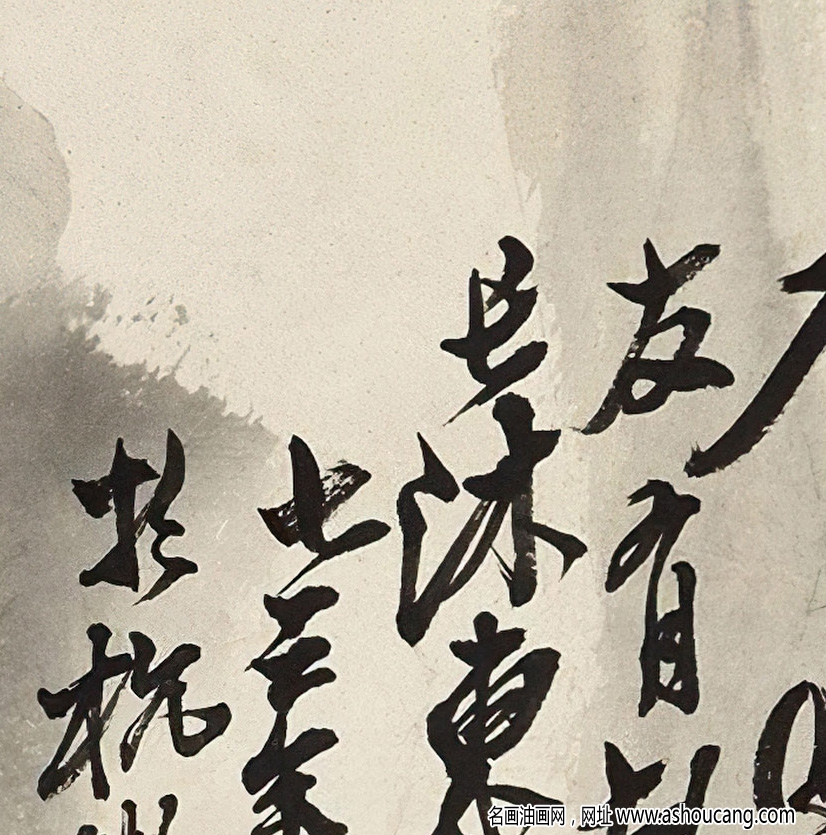 友有
长沐東
七三年
於杭
名画油画网，网址 www.ashoucang.com